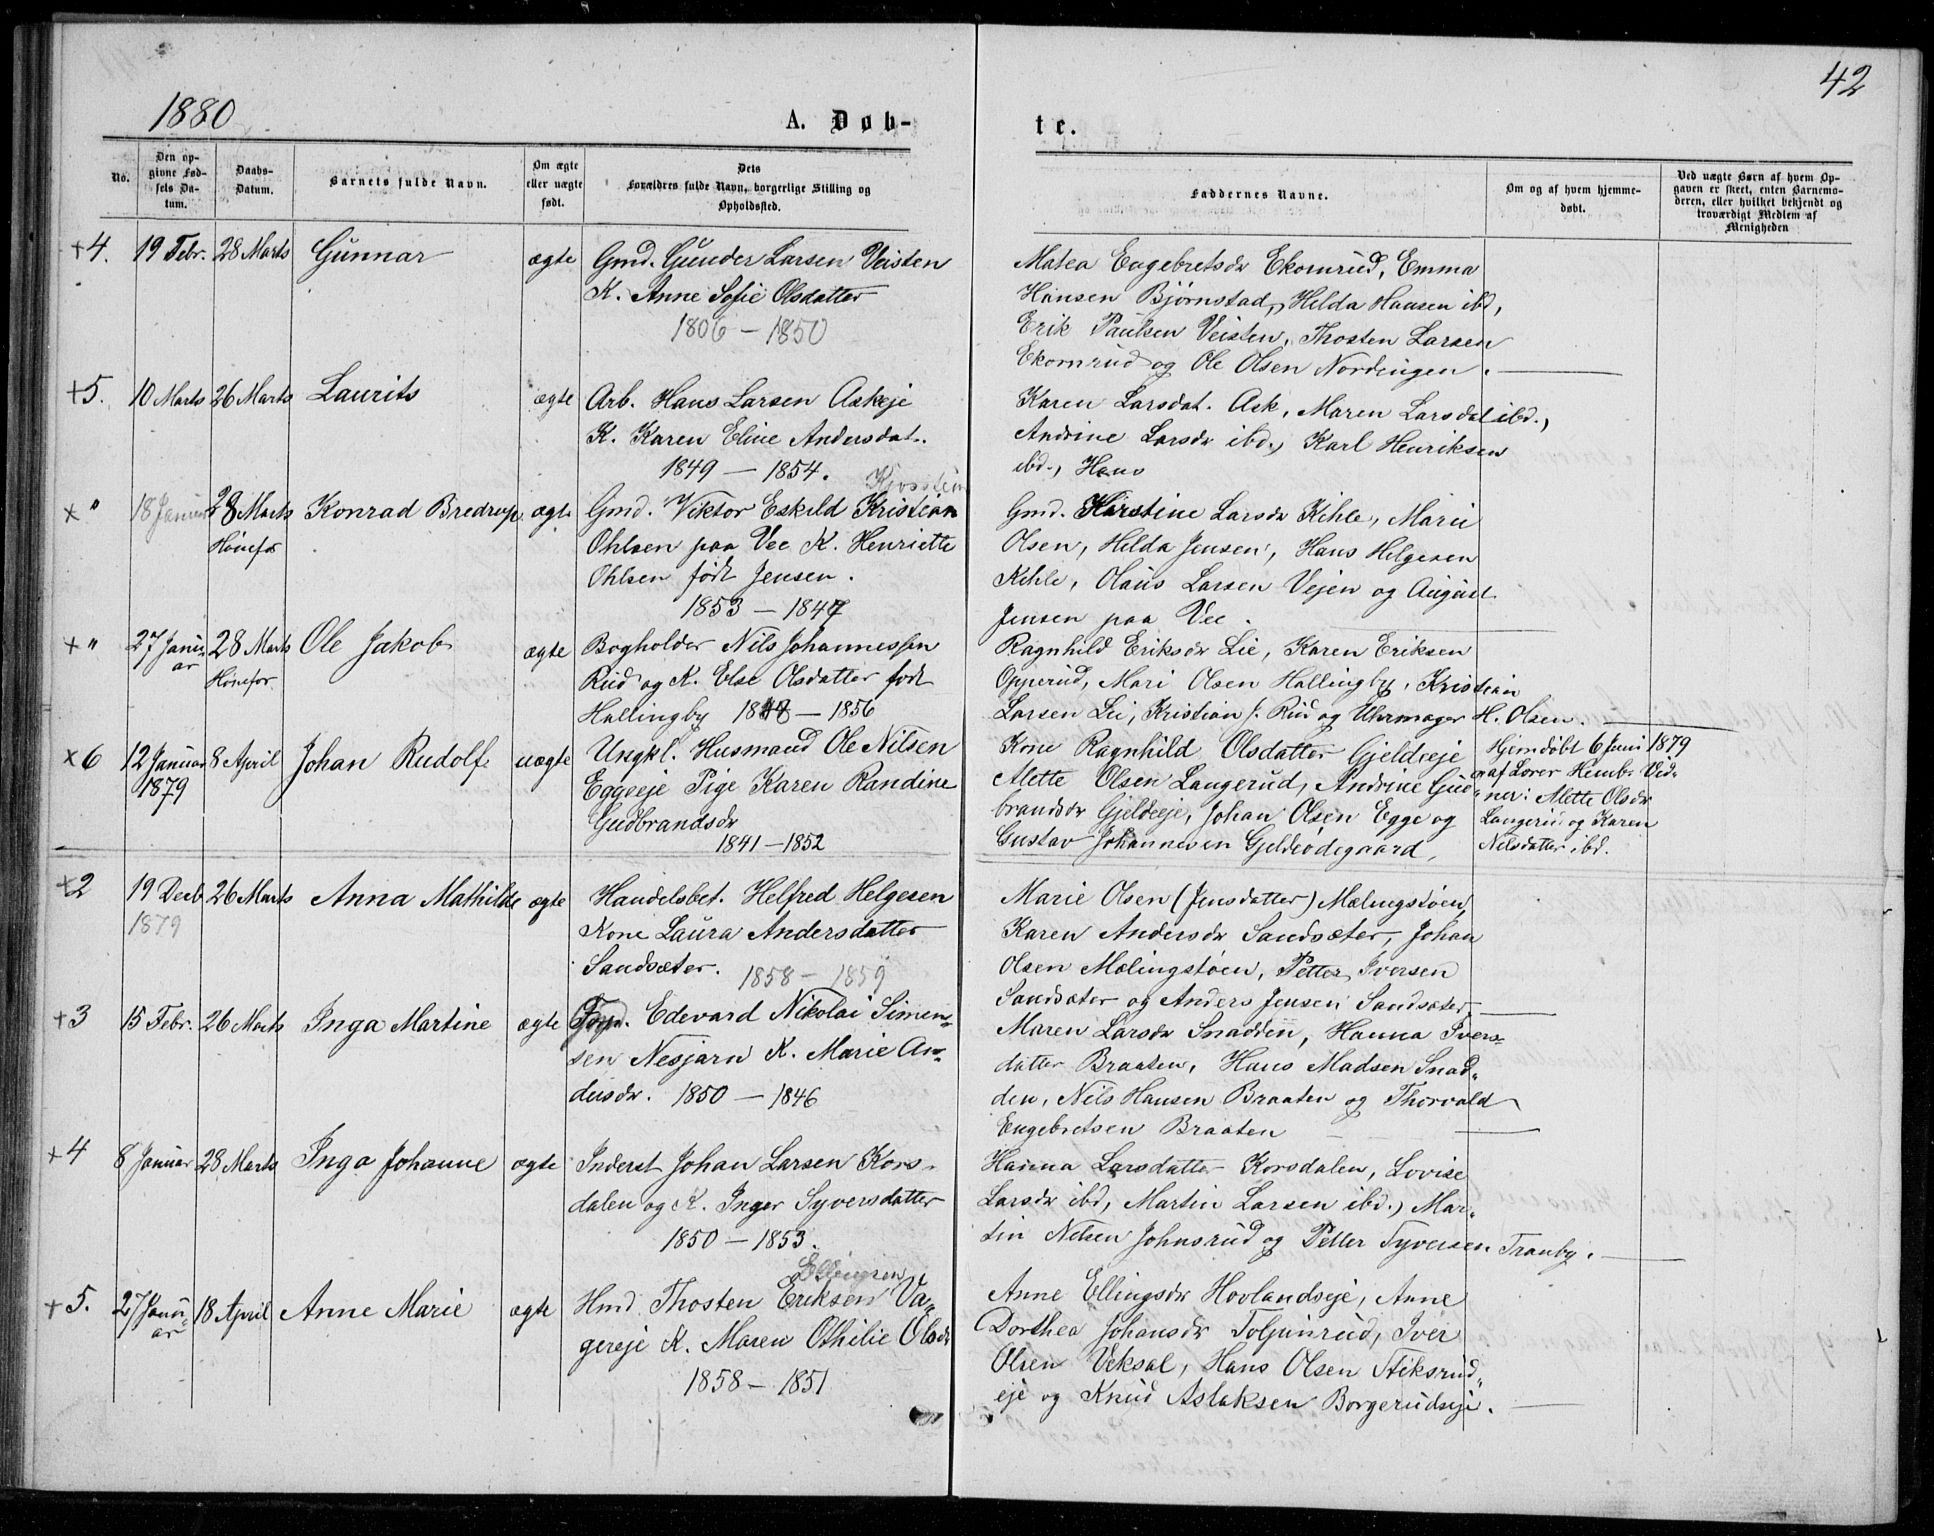 42
1880
A. Døb-
te.
No.
Den op-
givne Fød-
sels Da-
tum.
Daabs-
Datum.
Barnets fulde Navn.
Om ægte
eller uægte
født.
Dets
Forældres fulde Navn, borgerlige Stilling og
Opholdssted.
Faddernes Navne.
Om og af hvem hjemme-
døbt.
Ved uægte Børn af hvem Op-
gaven er skeet, enten Barnemo-
deren, eller hvilket bekjendt og
troværdigt Medlem af
Menigheden
+4. 19 Febr. 28 Marts Gunnar ægte
Gmd. Gunder Larsen Veisten
K. Anne Sofie Olsdatter
1806 - 1850
Matea Engebretsdr Ekornrud, Emma
Hansen Bjørnstad, Hilda Hansen ibd,
Erik Paulsen Veisten, Thosten Larsen
Ekornrud og Ole Olsen Nordingen.
+5. 10 Marts 26 Marts Laurits ægte
Arb. Hans Larsen Askeje
K. Karen Eline Andersdat.
1849 - 1854.
Karen Larsdat. Ask, Maren Larsdat ibd.,
Andrine Larsdr ibd., Karl Henriksen
ibd., Hans
x " 18 Januar 28 Marts
Hønefos
Konrad Bredrup ægte
Gmd. Viktor Eskild Kristian
Ohlsen paa Vee K. Henriette
Ohlsen født Jensen.
1853 - 1847
Gmd. Kirstine Larsdr Kihle, Marie
Olsen, Hilda Jensen, Hans Helgesen
Kihle, Olaus Larsen Vejen og August
Jensen paa Vee.
x " 27 Janu-
ar
28 Marts
Hønefos.
Ole Jakob ægte
Bogholder Nils Johannessen
Rud og K. Else Olsdatter født
Hallingby 1848 - 1856
Ragnhild Eriksdr Lie, Karen Eriksen
Opperud, Mari Olsen Hallingby, Kristian
Larsen Lie, Kristian J. Rud og Uhrmager H. Olsen.
x 6 12 Januar
1879
8 April Johan Rudolf uægte
Ungkl. Husmand Ole Nilsen
Eggeeje Pige Karen Randine
Gudbrandsdr
1841 - 1852
Kone Ragnhild Olsdatter Gjeldeeje
Mette Olsen Langerud, Andrine Gud-
brandsdr Gjeldeeje, Johan Olsen Egge og
Gustav Johannesen Gjeldeødegaard,
Hjemdøbt 6 Juni 1879
af Lærer Hemb. Vid-
ner: Mette Olsdr
Langerud og Karen
Nilsdatter ibd.
+2 19 Decb
1879
26 Marts Anna Mathilde ægte
Handelsbet. Helfred Helgesen
Kone Laura Andersdatter
Sandsæter. 1858 - 1859
Marie Olsen (Jensdatter) Mælingstøen,
Karen Andersdr Sandsæter, Johan
Olsen Mælingstøen, Petter Iversen
Sandsæter og Anders Jensen Sandsæter,
+3 15 Febr. 26 Marts Inga Martine ægte
Forp. Edevard Nikolai Simen-
sen Nesjarn K. Marie An-
dersdr. 1850 - 1846
Maren Larsdr Snadden, Hanna Ivers-
datter Braaten, Hans Madsen Snad-
den, Nils Hansen Braaten og Thorvald
Engebretsen Braaten
+4 8 Januar 28 Marts Inga Johanne ægte
Inderst Johan Larsen Kors-
dalen og K. Inger Syversdatter
1850 - 1853.
Hanna Larsdatter Korsdalen, Lovise
Larsdr ibd, Martin Larsen ibd., Mar-
tin Nilsen Johnsrud og Petter Syversen Tranby.
+5. 27 Janu-
ar
18 April Anne Marie ægte
Ellingsen
Hmd. Thosten Eriksen Va-
gereje K. Maren Othilie Olsdr
1858 - 1851
Anne Ellingsdr Hovlandseje, Anne
Dorthea Johansdr Toljunrud, Iver
Olsen Veksal, Hans Olsen Stiksrud-
eje og Knud Aslaksen Borgerudseje.